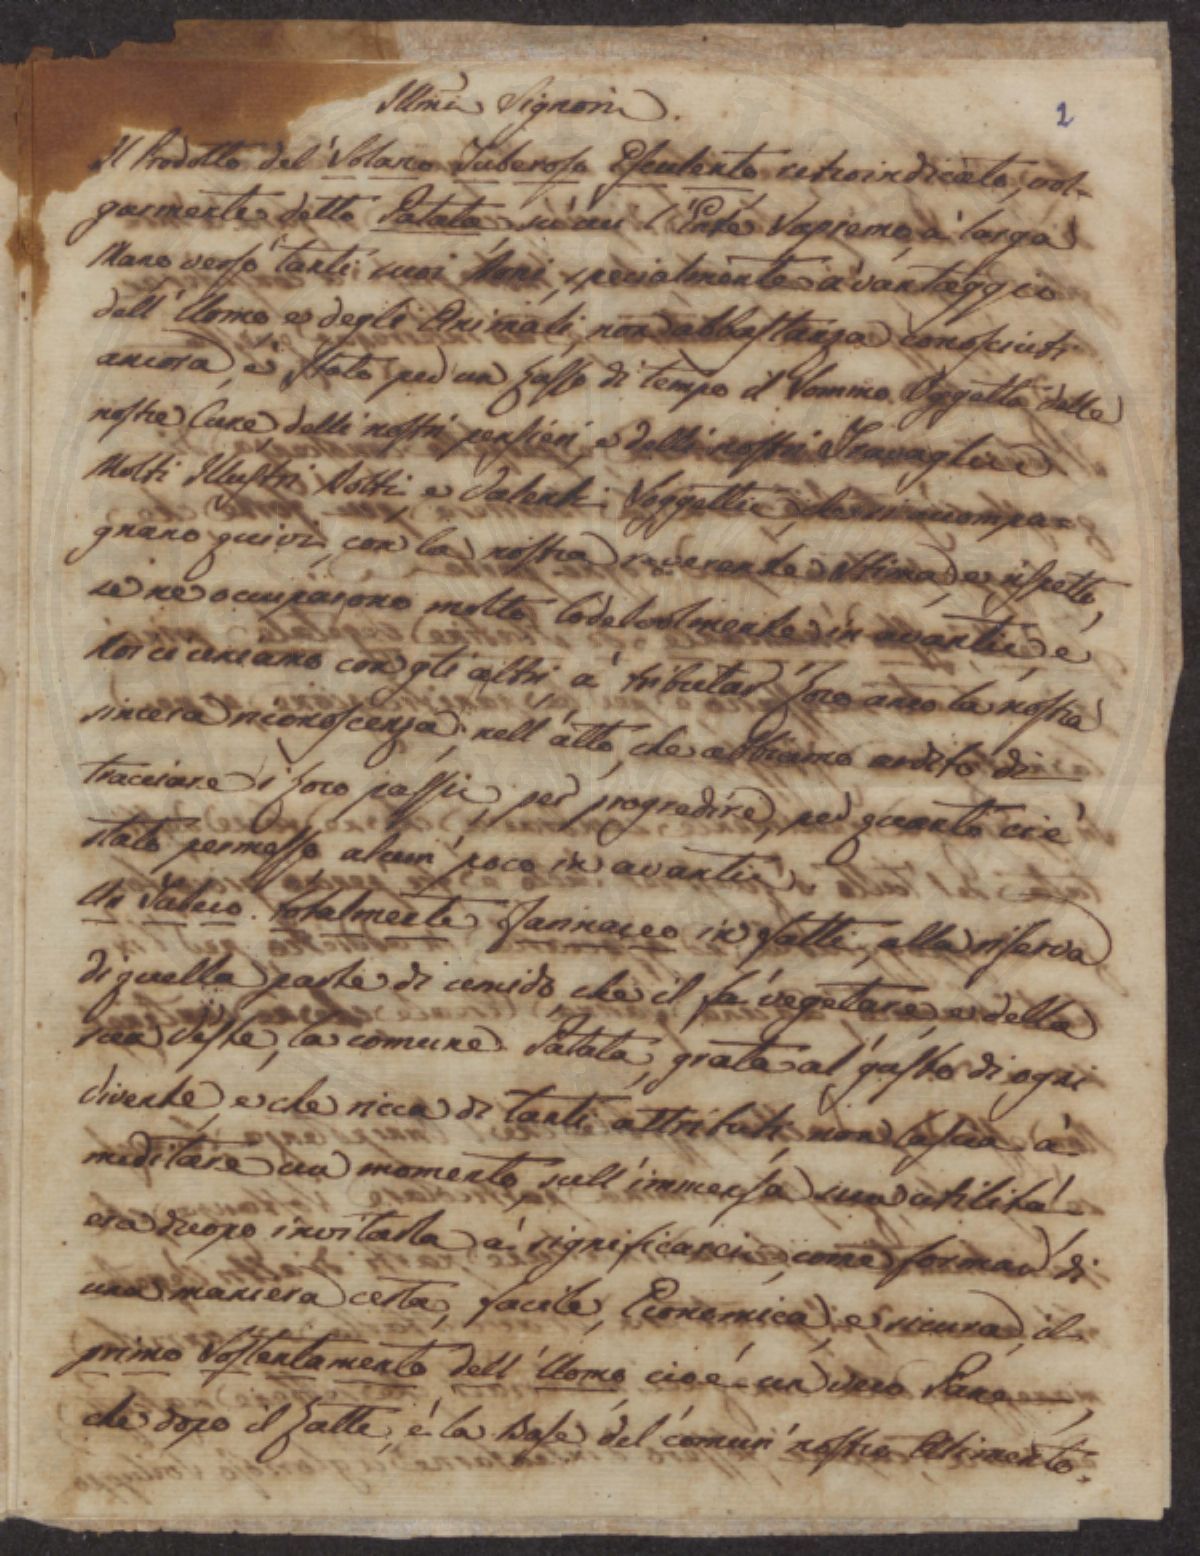 Illmi Signori.
2
Il Prodotto del Solano Tuberoso Esculento retroindicato, vol-
garmente detto Patata su cui l'Ente Supremo à larga
Mano versò tanti suoi Doni, specialmente a vantaggio
dell'Uomo e degli Animali, non abbastanza conosciuti
ancora, è stato per un Lasso di tempo il Sommo Oggetto delle
nostre Cure delli nostri pensieri, e delli nostri Travagli
Molti Illustri Dotti, e Valenti Soggetti, che
gnano quivi, con la nostra reverente stima, e rispetto,
se ne occuparono molto lodevolmente in avanti, e
Noi ci uniamo con gli altri à tributar Loro anco la nostra
sincera riconoscenza, nell'atto, che abbiamo ardito di
tracciare i Loro passi, per progredire, per quanto ci è
stato permesso alcun poco in avanti.
Un Valico totalmente Farinaceo in fatti, alla riserva
di quella parte di umido, che il fà vegetare, e della
sua Veste, la comune Patata, grata al gusto di ogni
Vivente, e che ricca di tanti attributi, non lascia à
meditare un momento sull'immensa sua utilità
era duopo invitarla à significarci, come formar di
una maniera certa, facile, Economica, e sicura, il
primo Sostentamento dell'Uomo cioè un vero Pane,
che dopo il Latte, è la Base del comun nostro Alimento.